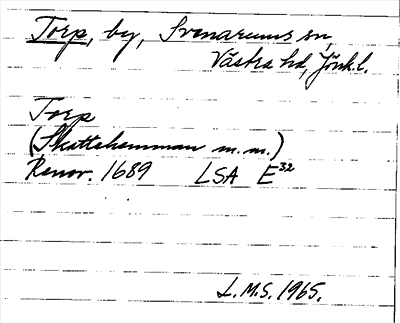 Torp, by, Svenarums sn,
Västra hd, Jönk.l.
Torp
(Skattehemman m.m.)
Renov. 1689 LSA E32
L.M.S. 1965.